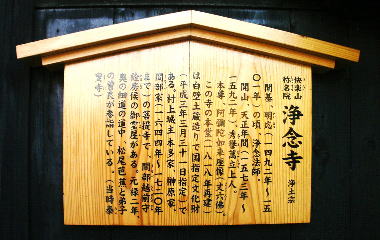 快楽山
竹名院
浄念寺
浄土宗
開基、明応(一四九二年〜一五
〇一年)の頃、浄念法師。
開山、天正年間(一五七三年〜
一五九二年)、秀誉萬立上人。
本尊、阿弥陀如来座像(丈六佛)。
この寺の本堂(一八一八年再建)
は白壁土蔵造りで国指定文化財
(平成三年三月三十一日指定)で
ある。村上城主本多家、榊原家、
間部家(一六四四年〜一七二〇年
まで)の菩提寺で、間部越前守
詮房候の御霊屋がある。元禄二年、
奥の細道の道中、松尾芭蕉と弟子
の曽良が参詣している。(当時泰
叟寺)